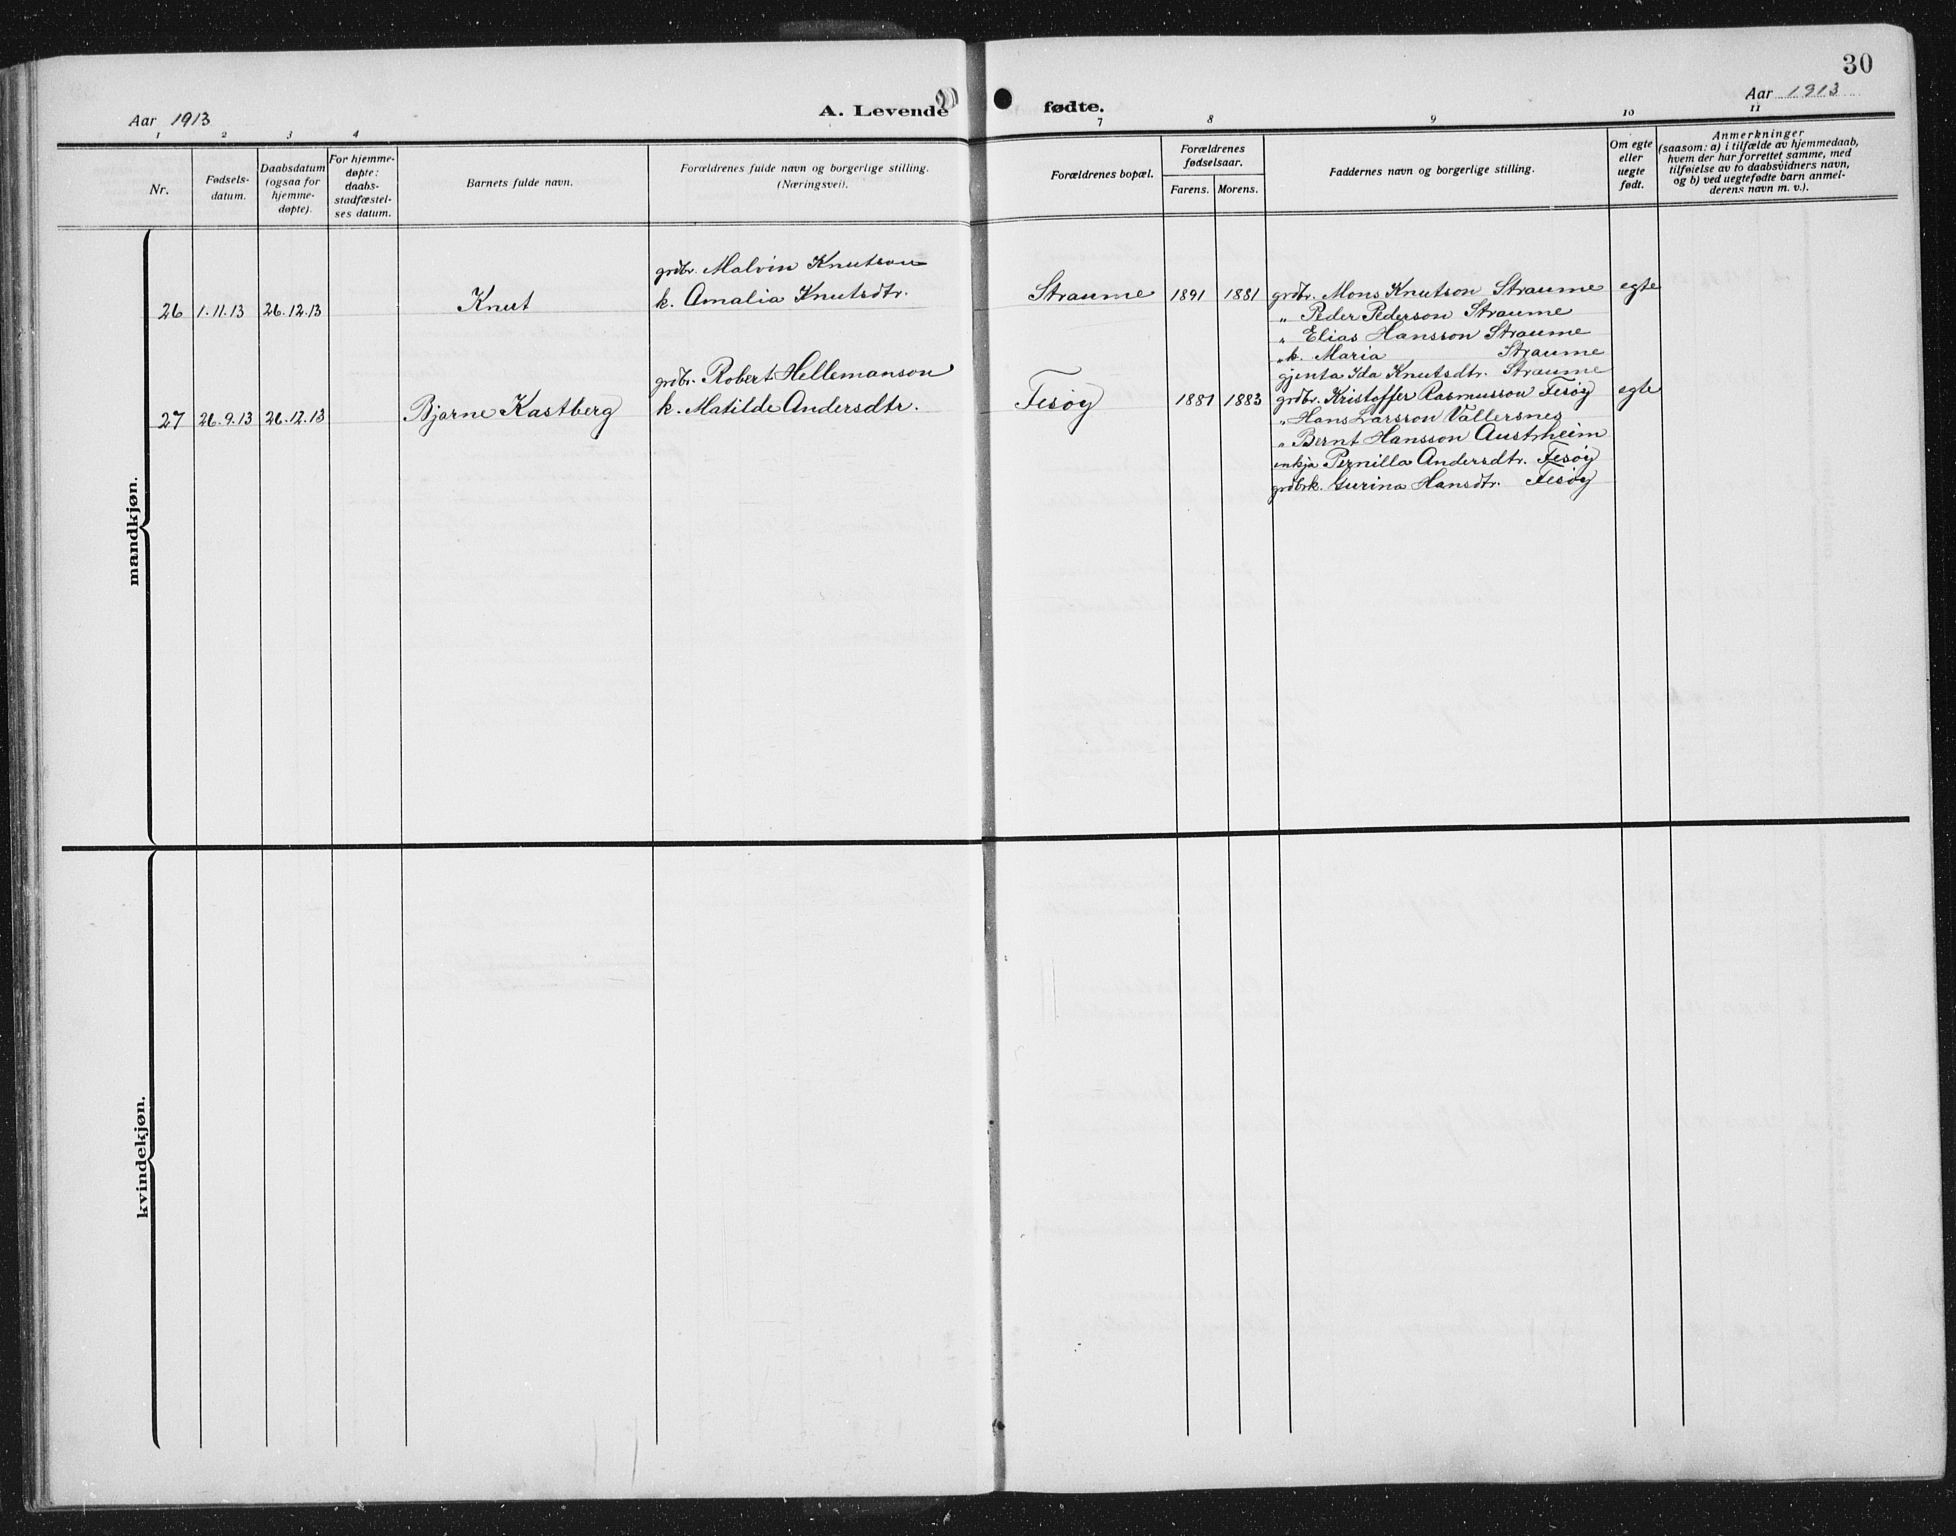 30
Aar 1913
A. Levende fødte.
Aar 1913
1 2 3 4 7 8 9 10 11
Nr.
Fødsels-
datum.
Daabsdatum
(ogsaa for
hjemme-
døpte).
For hjemme-
døpte:
daabs-
stadfæstel-
ses datum.
Barnets fulde navn.
Forældrenes fulde navn og borgerlige stilling.
(Næringsvei).
Forældrenes bopæl.
Forældrenes
fødselsaar.
Farens. Morens.
Faddernes navn og borgerlige stilling.
Om egte
eller
uegte
født.
Anmerkninger
(saasom: a) i tilfælde av hjemmedaab,
hvem der har forrettet samme, med
tilføielse av to daabsvidners navn,
og b) ved uegtefødte barn anmel-
derens navn m. v.).
mandkjøn.
grdbr. Malvin Knutson
26 1.11.13 26.12.13 Knut k. Amalia Knutsdtr. Straume 1891 1881 grdbr. Mons Knutson Straume egte
" Peder Pederson Straume
" Elias Hansson Straume
" k. Maria Straume
gjenta Ida Knutsdtr. Straume
grdbr. Robert Hellemanson
27 26.9.13 26.12.13 Bjarne Kastberg k. Matilde Andersdtr. Fesøy 1881 1883 grdbr. Kristoffer Rasmusson Fesøy egte
" Hans Larsson Vallersnes
" Bernt Hansson Austrheim
enkja Pernilla Andersdtr. Fesøy
grdbrk. Gurina Hansdtr. Fesøy
kvindekjøn.